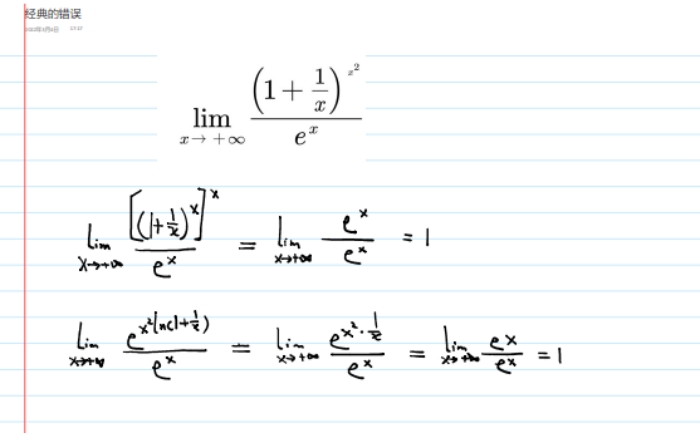 经典的错误
lim x→+∞ (1+1/x)^x² / e^x
lim x→+∞ [(1+1/x)^x]^x / e^x = lim x→+∞ e^x / e^x = 1
lim x→+∞ e^x²ln(1+1/x) / e^x = lim x→+∞ e^x²·1/x / e^x = lim x→+∞ e^x / e^x = 1